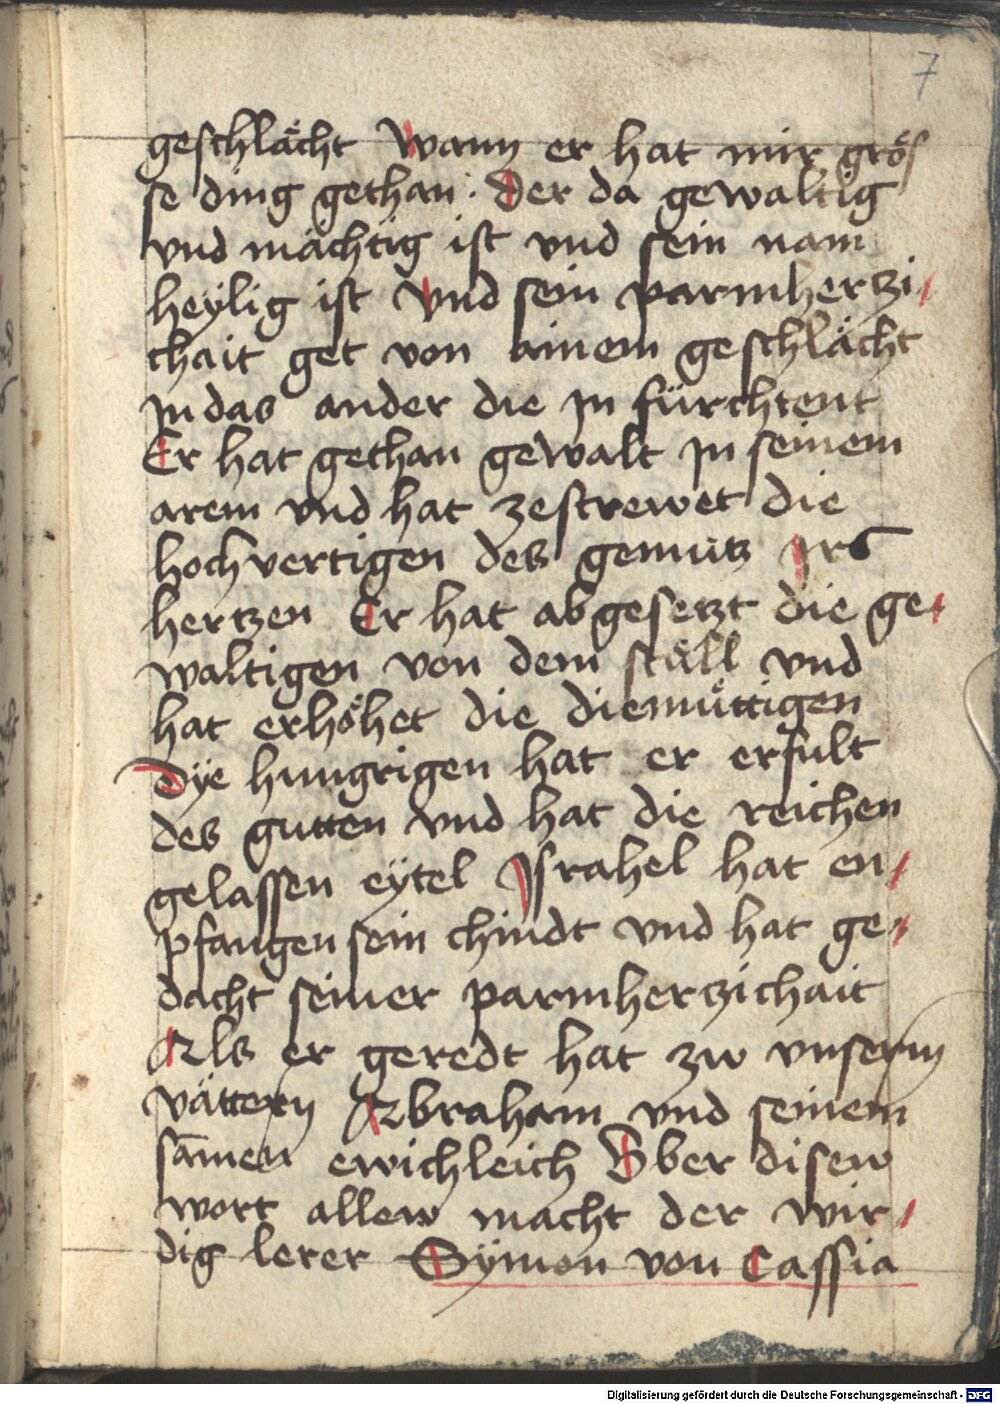 7
geschlächt Wann er hat mir grös
se ding gethan · Der da gewaltig
vnd mächtig ist vnd sein nam
heÿlig ist Vnd sein parmhertzi /
chait get von ainem geschlächt
jn das ander die jn fürchtent
Er hat gethan gewalt jn seinem
arem vnd hat zestrewet die
hochvertigen des gemütz jrs
hertzen Er hat abgesetzt die ge /
waltigen von dem ställ vnd
hat erhöhet die diemüttigen
Dÿe hungrigen hat er erfult
des gutten vnd hat die reichen
gelassen eÿtel Jsrahel hat en /
pfangen sein chindt vnd hat ge /
dacht seiner parmhertzichait
Als er geredt hat zw vnsern
vättern Abraham vnd seinem
samen ewichleich Vber disew
wort allew macht der wir /
dig lerer Sÿmon von Cassia
Digitalisierung gefördert durch die Deutsche Forschungsgemeinschaft - DFG